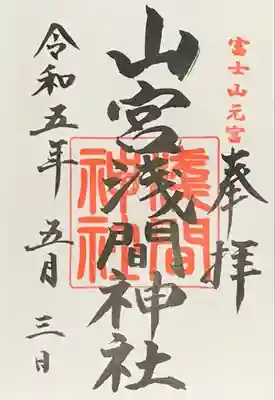 富士山元宮
奉拝
山宮浅間神社
淺間神社
令和五年 五月 三日